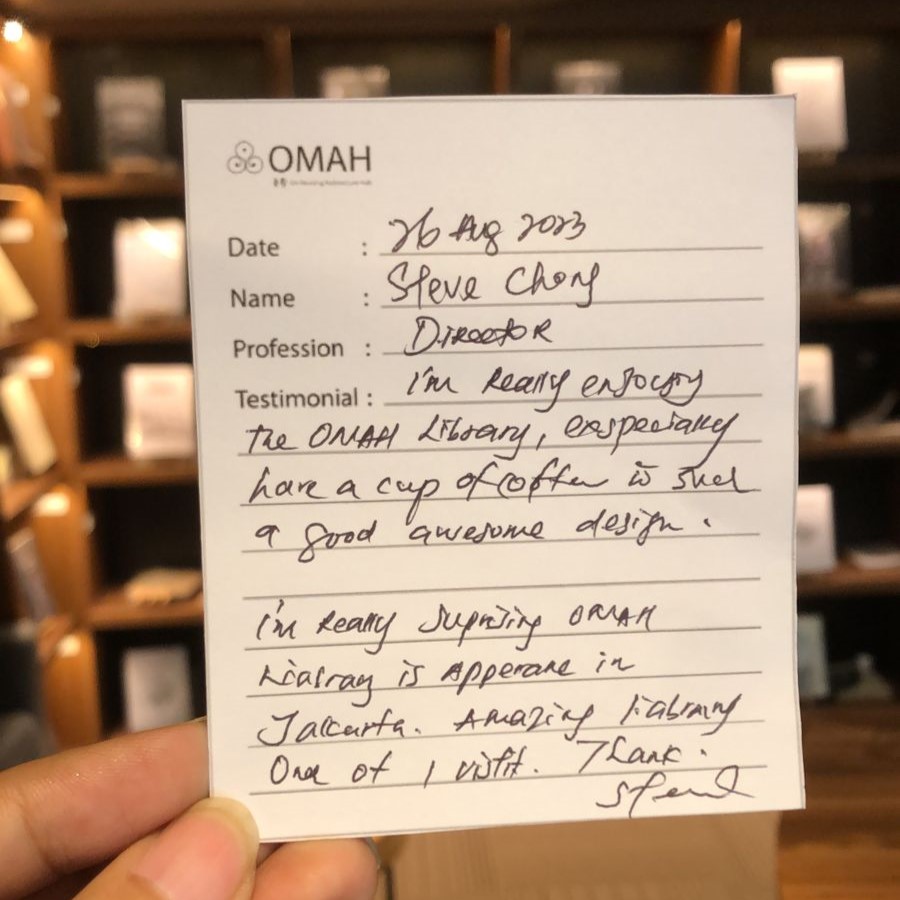 OMAH
Date : 26 Aug 2023
Name : Steve Chong
Profession : Director
Testimonial : I'm Really enjoying
the OMAH Library, exspecially
have a cup of coffee in such
a good awesome design.
I'm Really suprising OMAH
is in
Jakarta. Amazing
One of 1 visit. Thank.